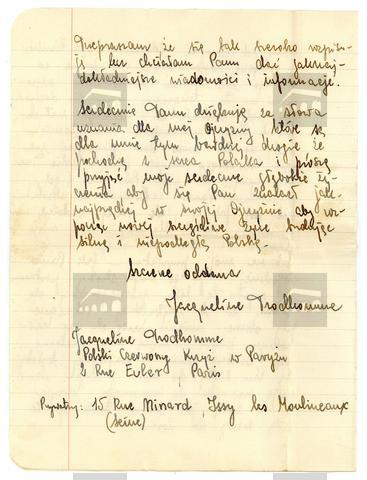 Przepraszam że się tak szeroko rozpisu-
ję lecz chciałam Panu dać jaknaj-
dokładniejsze wiadomości i informacje.
Serdecznie Panu dziękuję za słowa
uznania dla mej Ojczyzny które są
dla mnie tym bardziej drogie że
pochodzą z serca Polaka i proszę
przyjąć moje serdeczne głębokie ży-
czenia aby się Pan znalazł jak-
najprędzej w swojej Ojczyźnie aby roz-
począć nowe szczęśliwe życie budując
silną i niepodległą Polskę.
Szczerze oddana
Jacqueline Prodhomme
Jacqueline Prodhomme
Polski Czerwony Krzyż w Paryżu
2 Rue Euler Paris
Prywatny: 15 Rue Minard, Issy les Moulineaux
(Seine)